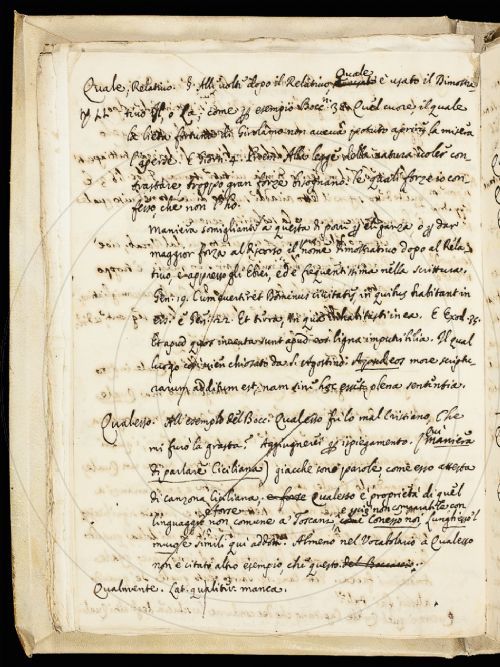 Quale, Relativo. §. Alle volte dopo il Relativo Quale è usato il Dimostra
tivo Il, o La; come per esempio Bocc. 38. Quel cuore il quale
la lieta fortuna di Girolamo non aveva potuto aprire, la misera
l'aperse. E Giorn. 4. Proem. Alle leggi della natura voler con
trastare, troppo gran forze bisognano: le quali forze io con
fesso che non l'ho.
Maniera somigliante a questa di porre per eleganza o per dar
maggior forza al discorso il nome Dimostrativo dopo al Rela
tivo, è appresso gli Ebrei, ed è frequentissima nella scrittura.
Gen: 19. in quibus habitant in
eis: è Et terra, in qua inhabitasti in ea. E Exod. 35.
Et apud quos inventa sunt apud eos ligna imputribilia. Il qual
luogo così vien chiosato da S. Agostino: Apud eos more scriptu
rarum additum est, nam sine hoc esset plena sententia.
Qualesso. All'esempio del Bocc. Qualesso fu lo mal Cristiano, Che
mi furò la grasta. Aggiugnerei per ispiegamento. (qui maniera
di parlare Ciciliana) giacchè sono parole come esso attesta
di canzona Ciciliana. e forse Qualesso è proprietà di quel
linguaggio non comune a Toscana, e quì non comparabile con
Conesso noi, Lunghesso il
muro e simili qui addotti. Almeno nel Vocabolario a Qualesso
non è citato altro esempio, che questo del Boccaccio.
Qualmente. Lat. qualiter manca.